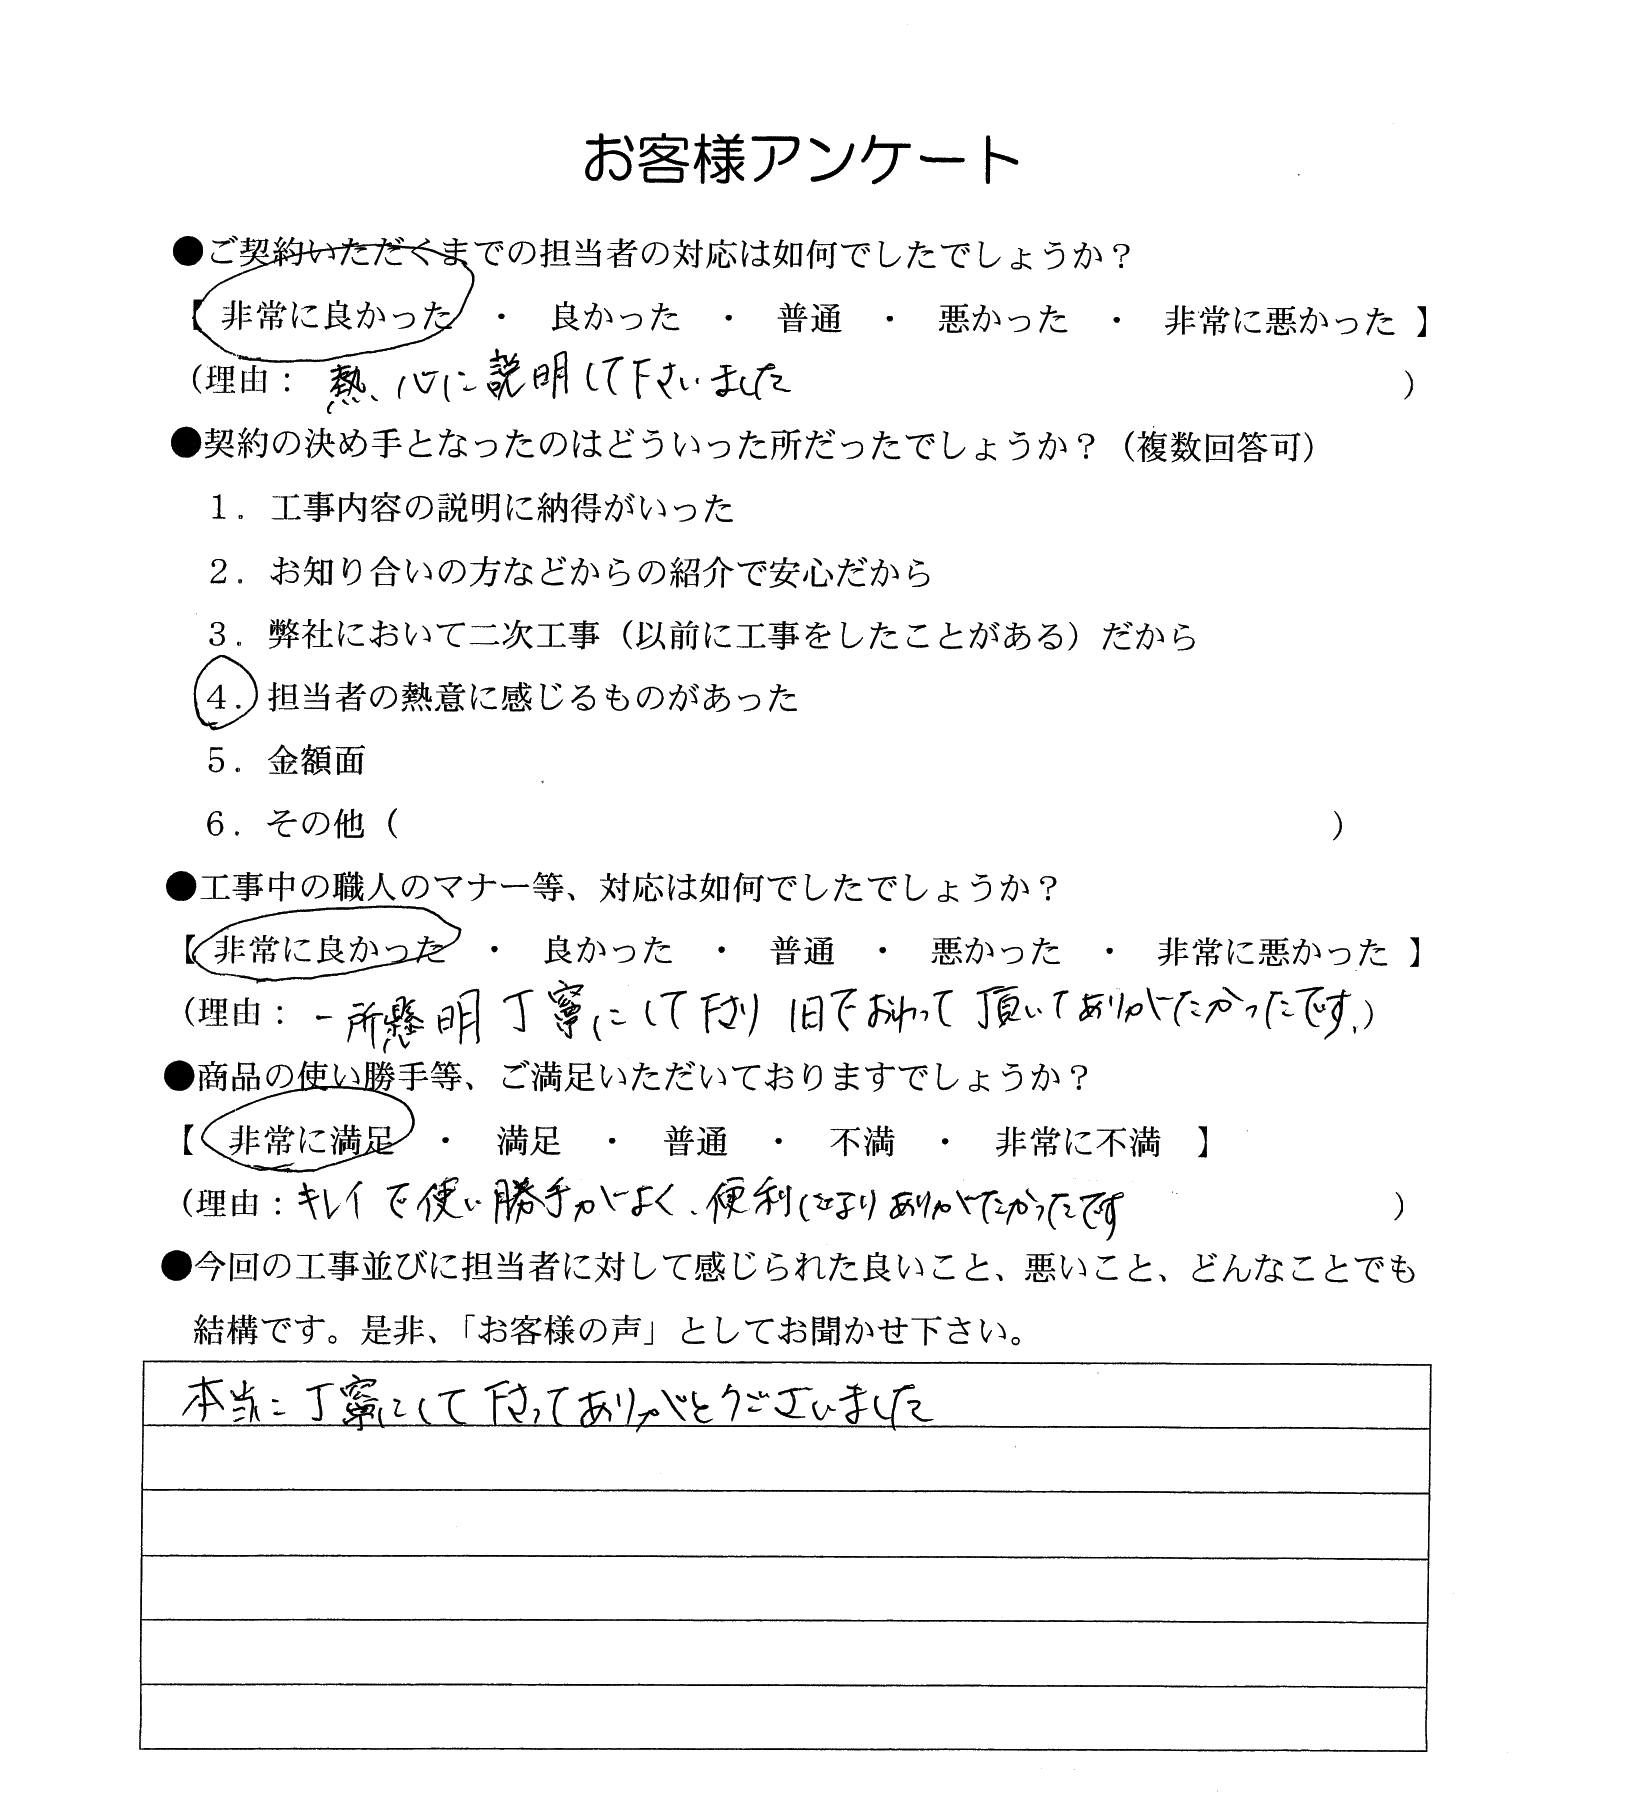 お客様アンケート
●ご契約いただくまでの担当者の対応は如何でしたでしょうか？
【 非常に良かった ・ 良かった ・ 普通 ・ 悪かった ・ 非常に悪かった 】
（理由： 熱心に説明して下さいました ）
●契約の決め手となったのはどういった所だったでしょうか？（複数回答可）
１．工事内容の説明に納得がいった
２．お知り合いの方などからの紹介で安心だから
３．弊社において二次工事（以前に工事をしたことがある）だから
４．担当者の熱意に感じるものがあった
５．金額面
６．その他（ ）
●工事中の職人のマナー等、対応は如何でしたでしょうか？
【 非常に良かった ・ 良かった ・ 普通 ・ 悪かった ・ 非常に悪かった 】
（理由： 一所懸明丁寧にして下さり 1日でおわって頂いてありがたかったです。）
●商品の使い勝手等、ご満足いただいておりますでしょうか？
【 非常に満足 ・ 満足 ・ 普通 ・ 不満 ・ 非常に不満 】
（理由：キレイで使い勝手がよく、便利になりありがたかったです ）
●今回の工事並びに担当者に対して感じられた良いこと、悪いこと、どんなことでも
結構です。是非、「お客様の声」としてお聞かせ下さい。
本当に丁寧にして下さってありがとうございました